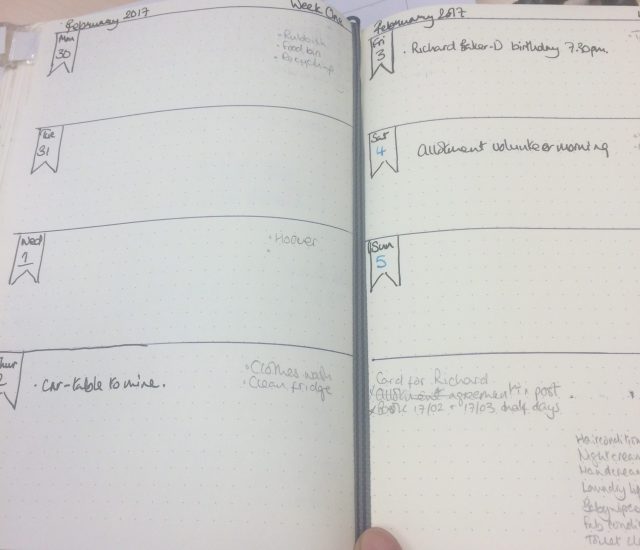 February 2017
Week One
Mon
30
• Rubbish
• Food bin
• Recycling
Tue
31
Wed
1
• Hoover
hur
2
• Car-table to mine.
• Clothes wash
• Clean fridge
February 2017
Fri
3
• Richard Baker-D birthday 7.30pm.
Sat
4
Allotment volunteer morning
Sun
5
Card for Richard
x Allotment agreement in post
x Book 17/02 + 17/03 half days
Haircondition
Nightcream
Handcream
Laundry li
Babywipes
Fab condi
Toilet cl